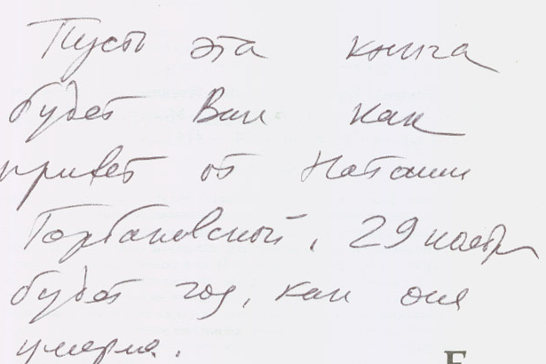 Пусть эта книга
будет Вам как
привет от Наташи
Горбаневской. 29 ноября
будет год, как она
умерла.